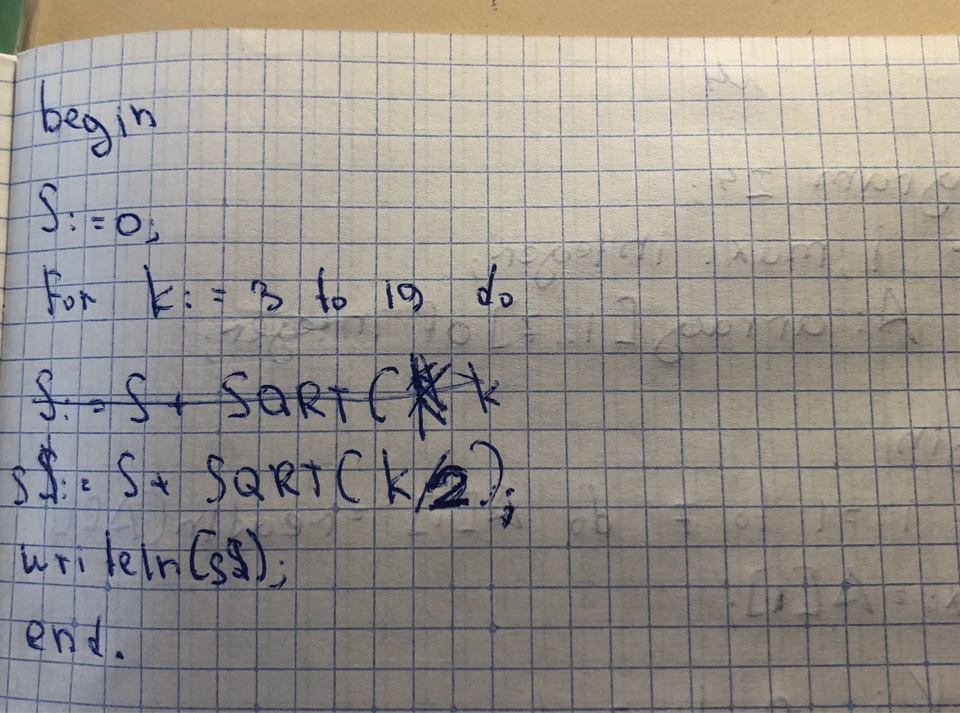 begin
S:=0;
for k:=3 to 19 do
S:=S+SQRT(k
S:=S+SQRT(k/2);
writeln(s);
end.